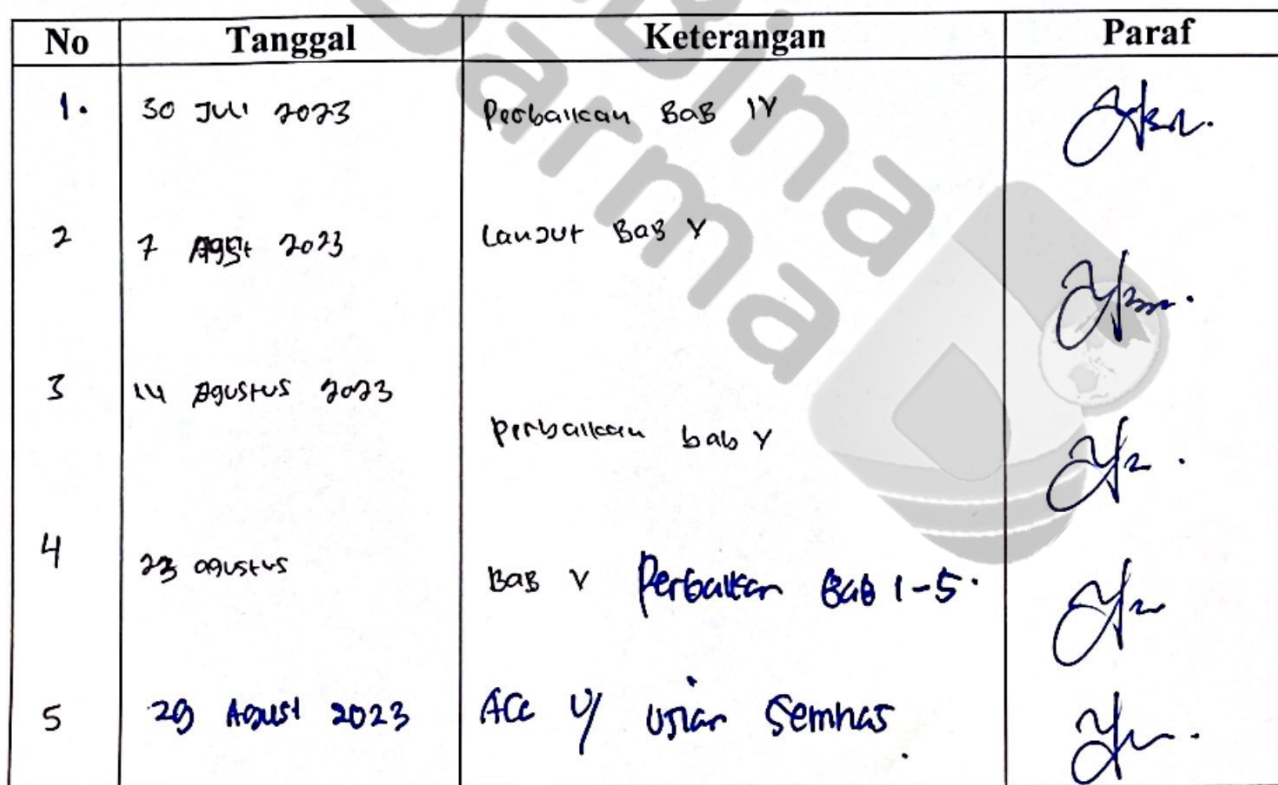 No Tanggal Keterangan Paraf
1. 30 Juli 2023 Perbaikan BaB IV
2 7 Agst 2023 Lanjut BaB V
3 14 Agustus 2023 perbaikan bab V
4 23 agustus BaB V Perbaikan Bab 1-5.
5 29 Agust 2023 ACC U/ Ujian Semhas
Bina
Darma